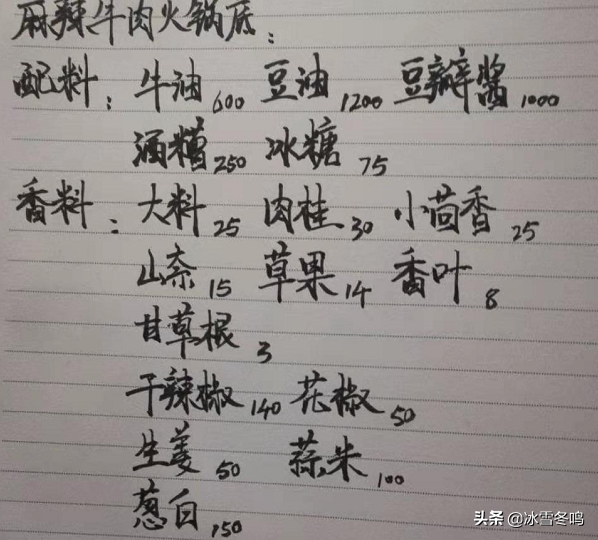 麻辣牛肉火锅底:
配料: 牛油600 豆油1200 豆瓣酱1000
酒糟250 冰糖75
香料: 大料25 肉桂30 小茴香25
山奈15 草果14 香叶8
甘草根3
干辣椒140 花椒50
生姜50 蒜米100
葱白150
头条 @冰雪冬鸣